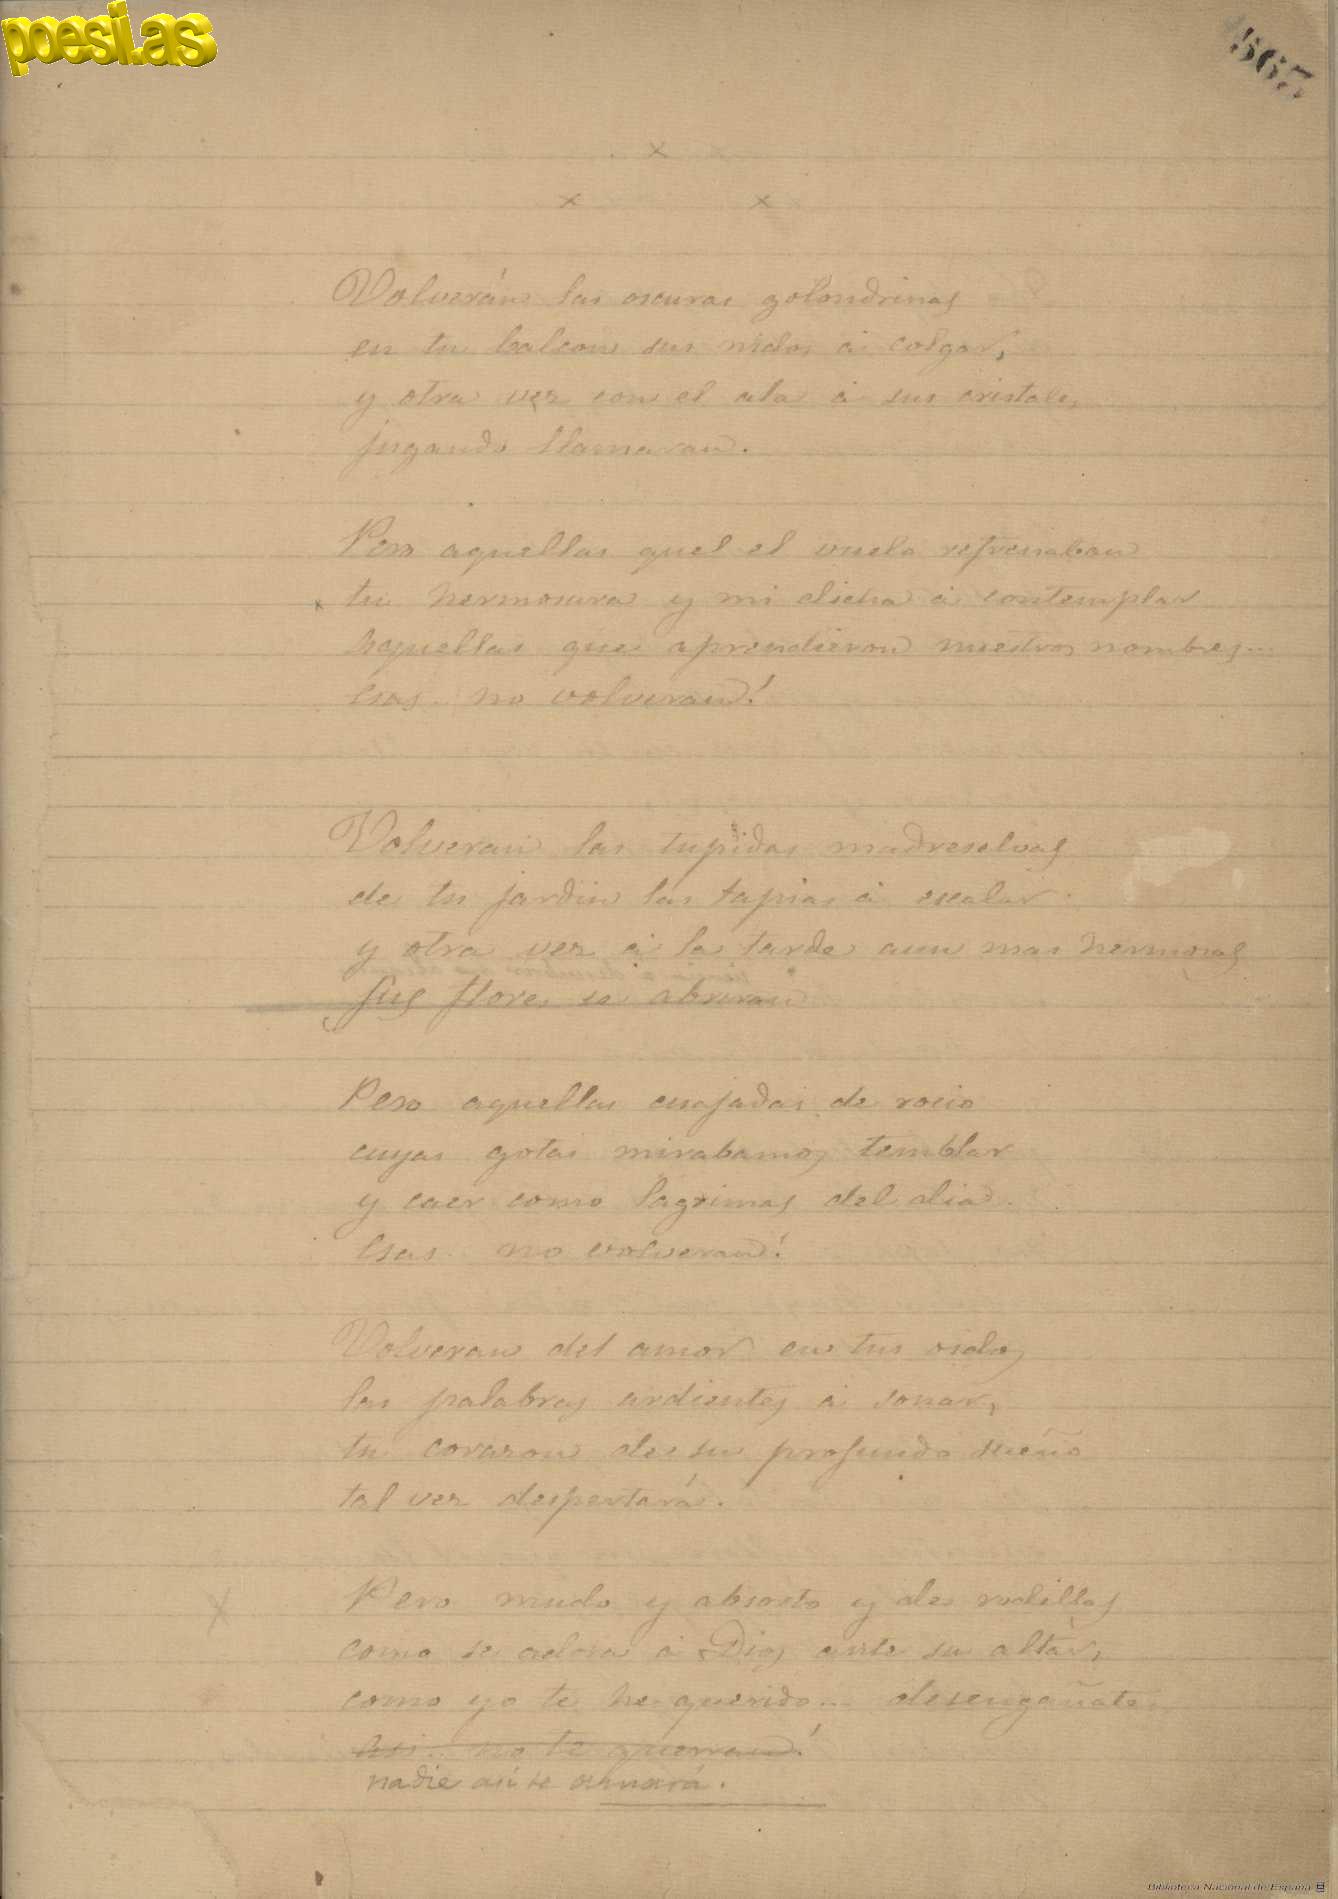 poesi.as
567
Volverán las oscuras golondrinas
en tu balcon sus nidos á colgar,
y otra vez con el ala á sus cristales
jugando llamaran.
Pero aquellas quel el vuelo refrenaban
tu hermosura y mi dicha á contemplar
Aquellas que aprendieron nuestros nombres...
Esas.. no volveran!
Volveran las tupidas madreselvas
de tu jardin las tapias á escalar
y otra vez á la tarde aun mas hermosas
sus flores se abriran
Pero aquellas cuajadas de rocio
cuyas gotas mirabamos temblar
y caer como lagrimas del dia..
Esas.. no volveran!
Volveran del amor en tus oidos
las palabras ardientes á sonar,
tu corazon de su profundo sueño
tal vez despertará.
Pero mudo y absorto y de rodillas
como se adora á Dios ante su altar,
como yo te he querido... desengañate
Asi.. no te querran!
nadie así te amará.
Biblioteca Nacional de España